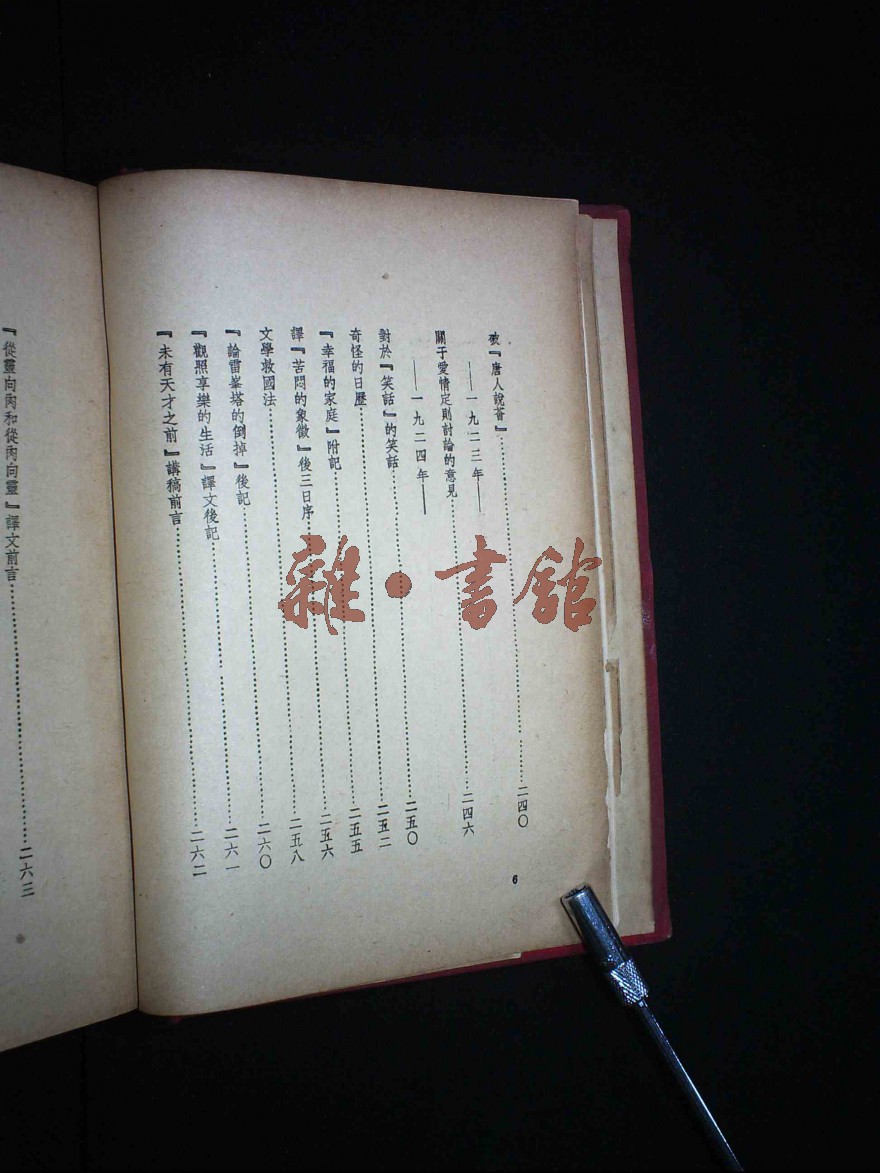 破『唐人說薈』……二四〇
——一九二三年——
關于愛情定則討論的意見……二四六
——一九二四年——
對於『笑話』的笑話……二五〇
奇怪的日歷……二五二
『幸福的家庭』附記……二五五
譯『苦悶的象徵』後三日序……二五六
文學救國法……二五八
『論雷峯塔的倒掉』後記……二六〇
『觀照享樂的生活』譯文後記……二六一
『未有天才之前』講稿前言……二六二
6
『從靈向肉和從肉向靈』譯文前言……二六三
雜·書館